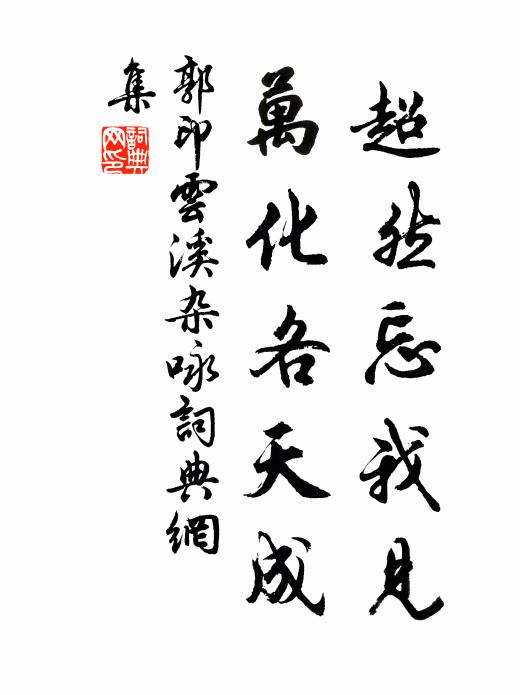 超然忘我見
萬化各天成
郭印雲溪杂咏詞典網
集
詞典网印